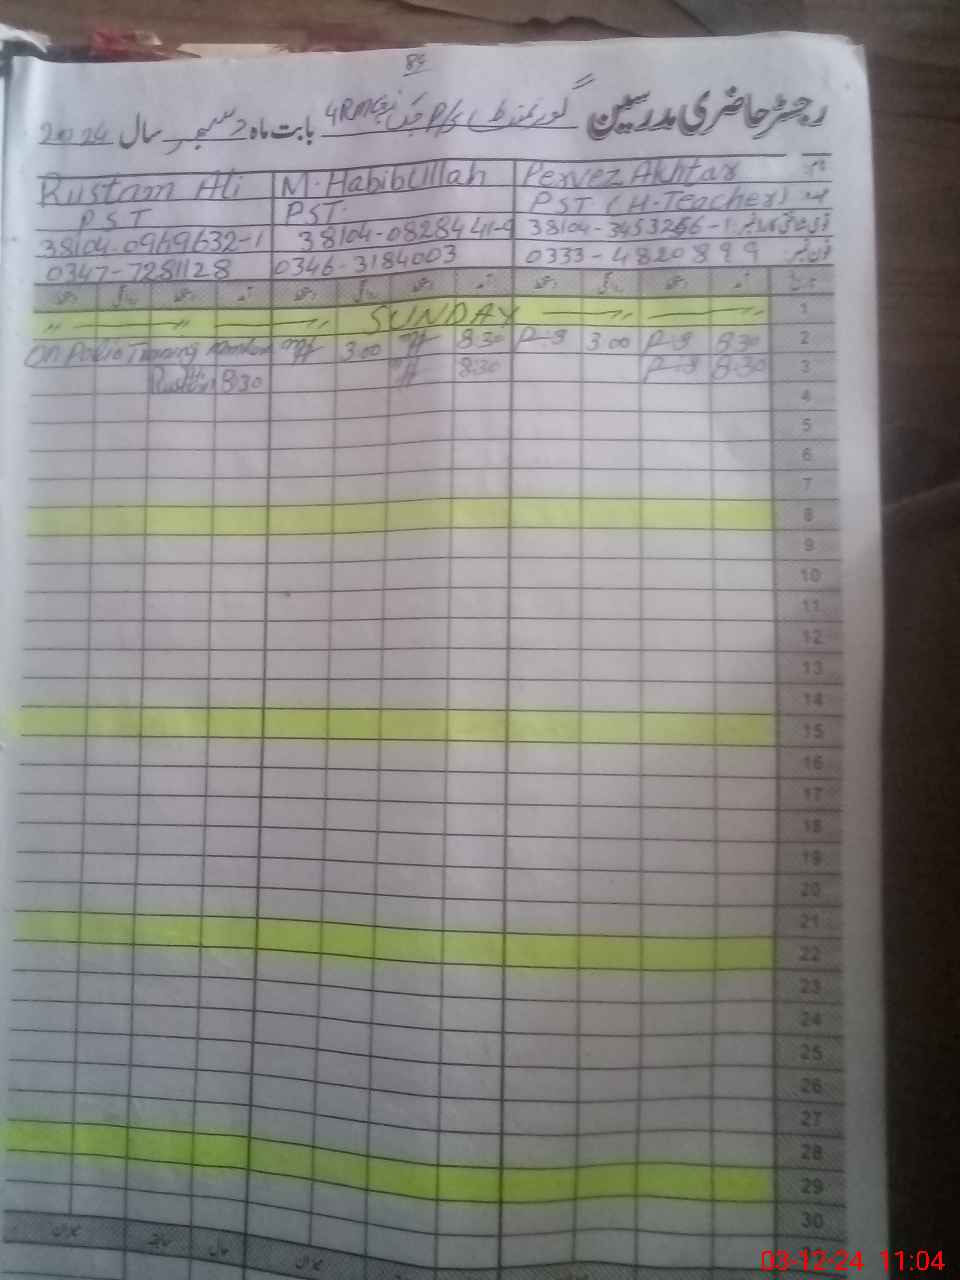 89
رجسٹر حاضری مدرسین گورنمنٹ P/S چک 4RM بابت ماہ دسمبر سال 2024
Rustam Ali M. Habibullah Pervez Akhtar نام
PST PST. PST (H-Teacher) عہدہ
38104-0969632-1 38104-0828441-9 38104-3453266-1
0347-7281128 0346-3184003 0333-4820899 فون نمبر
SUNDAY 1
On Polio Training 3:00 8:30 3:00 8:30 2
8:30 8:30 8:30 3
4
5
6
7
8
9
10
11
12
13
14
15
16
17
18
19
20
21
22
23
24
25
26
27
28
29
30
03-12-24 11:04